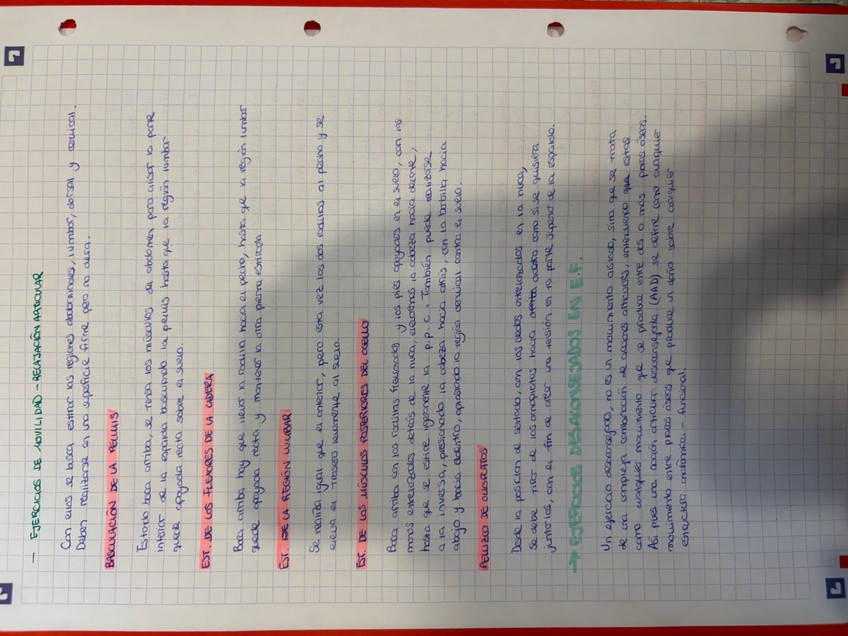 — EJERCICIOS DE MOVILIDAD - RELAJACIÓN ARTICULAR
Con ellos se busca estirar las regiones abdominales, lumbar, dorsal y cervical.
Deben realizarse en una superficie firme pero no dura.
BASCULACIÓN DE LA PELVIS
Estando boca arriba, se tensa los músculos del abdomen para alisar la parte
inferior de la espalda basculando la pelvis hasta que la región lumbar
quede apoyada recta sobre el suelo.
EST. DE LOS FLEXORES DE LA CADERA
Boca arriba hay que llevar la rodilla hacia el pecho, hasta que la región lumbar
quede apoyada recta y mantener la otra pierna estirada
EST. DE LA REGIÓN LUMBAR
Se realiza igual que el anterior, pero esta vez las dos rodillas al pecho y se
eleva el trasero levemente al suelo.
EST. DE LOS MÚSCULOS POSTERIORES DEL CUELLO
Boca arriba, con las rodillas flexionadas y los pies apoyados en el suelo, con las
manos entrelazadas detrás de la nuca, elevamos la cabeza hacia delante,
hasta que se estire ligeramente la p.p.c. También, puede realizarse
a la inversa, presionando la cabeza hacia atrás, con la barbilla hacia
abajo y hacia dentro, apoyando la región cervical contra el suelo.
PELLIZCO DE OMOPLATOS
Desde la posición de sentado, con los dedos entrelazados en la nuca,
se debe tirar de los omoplatos hacia como si se quisiera
juntarlos, con el fin de crear una tensión en la parte superior de la espalda.
→ EJERCICIOS DESACONSEJADOS EN E.F.
Un ejercicio desaconsejado, no es un movimiento aislado, sino que se trata
de una compleja combinación de acciones articulares, entendiendo que estas
como cualquier movimiento que se produce entre dos o más piezas óseas.
Así pues una acción articular desaconsejada (AAD) se define como cualquier
movimiento entre piezas óseas que produce un daño sobre cualquier
estructura anatómica - funcional.